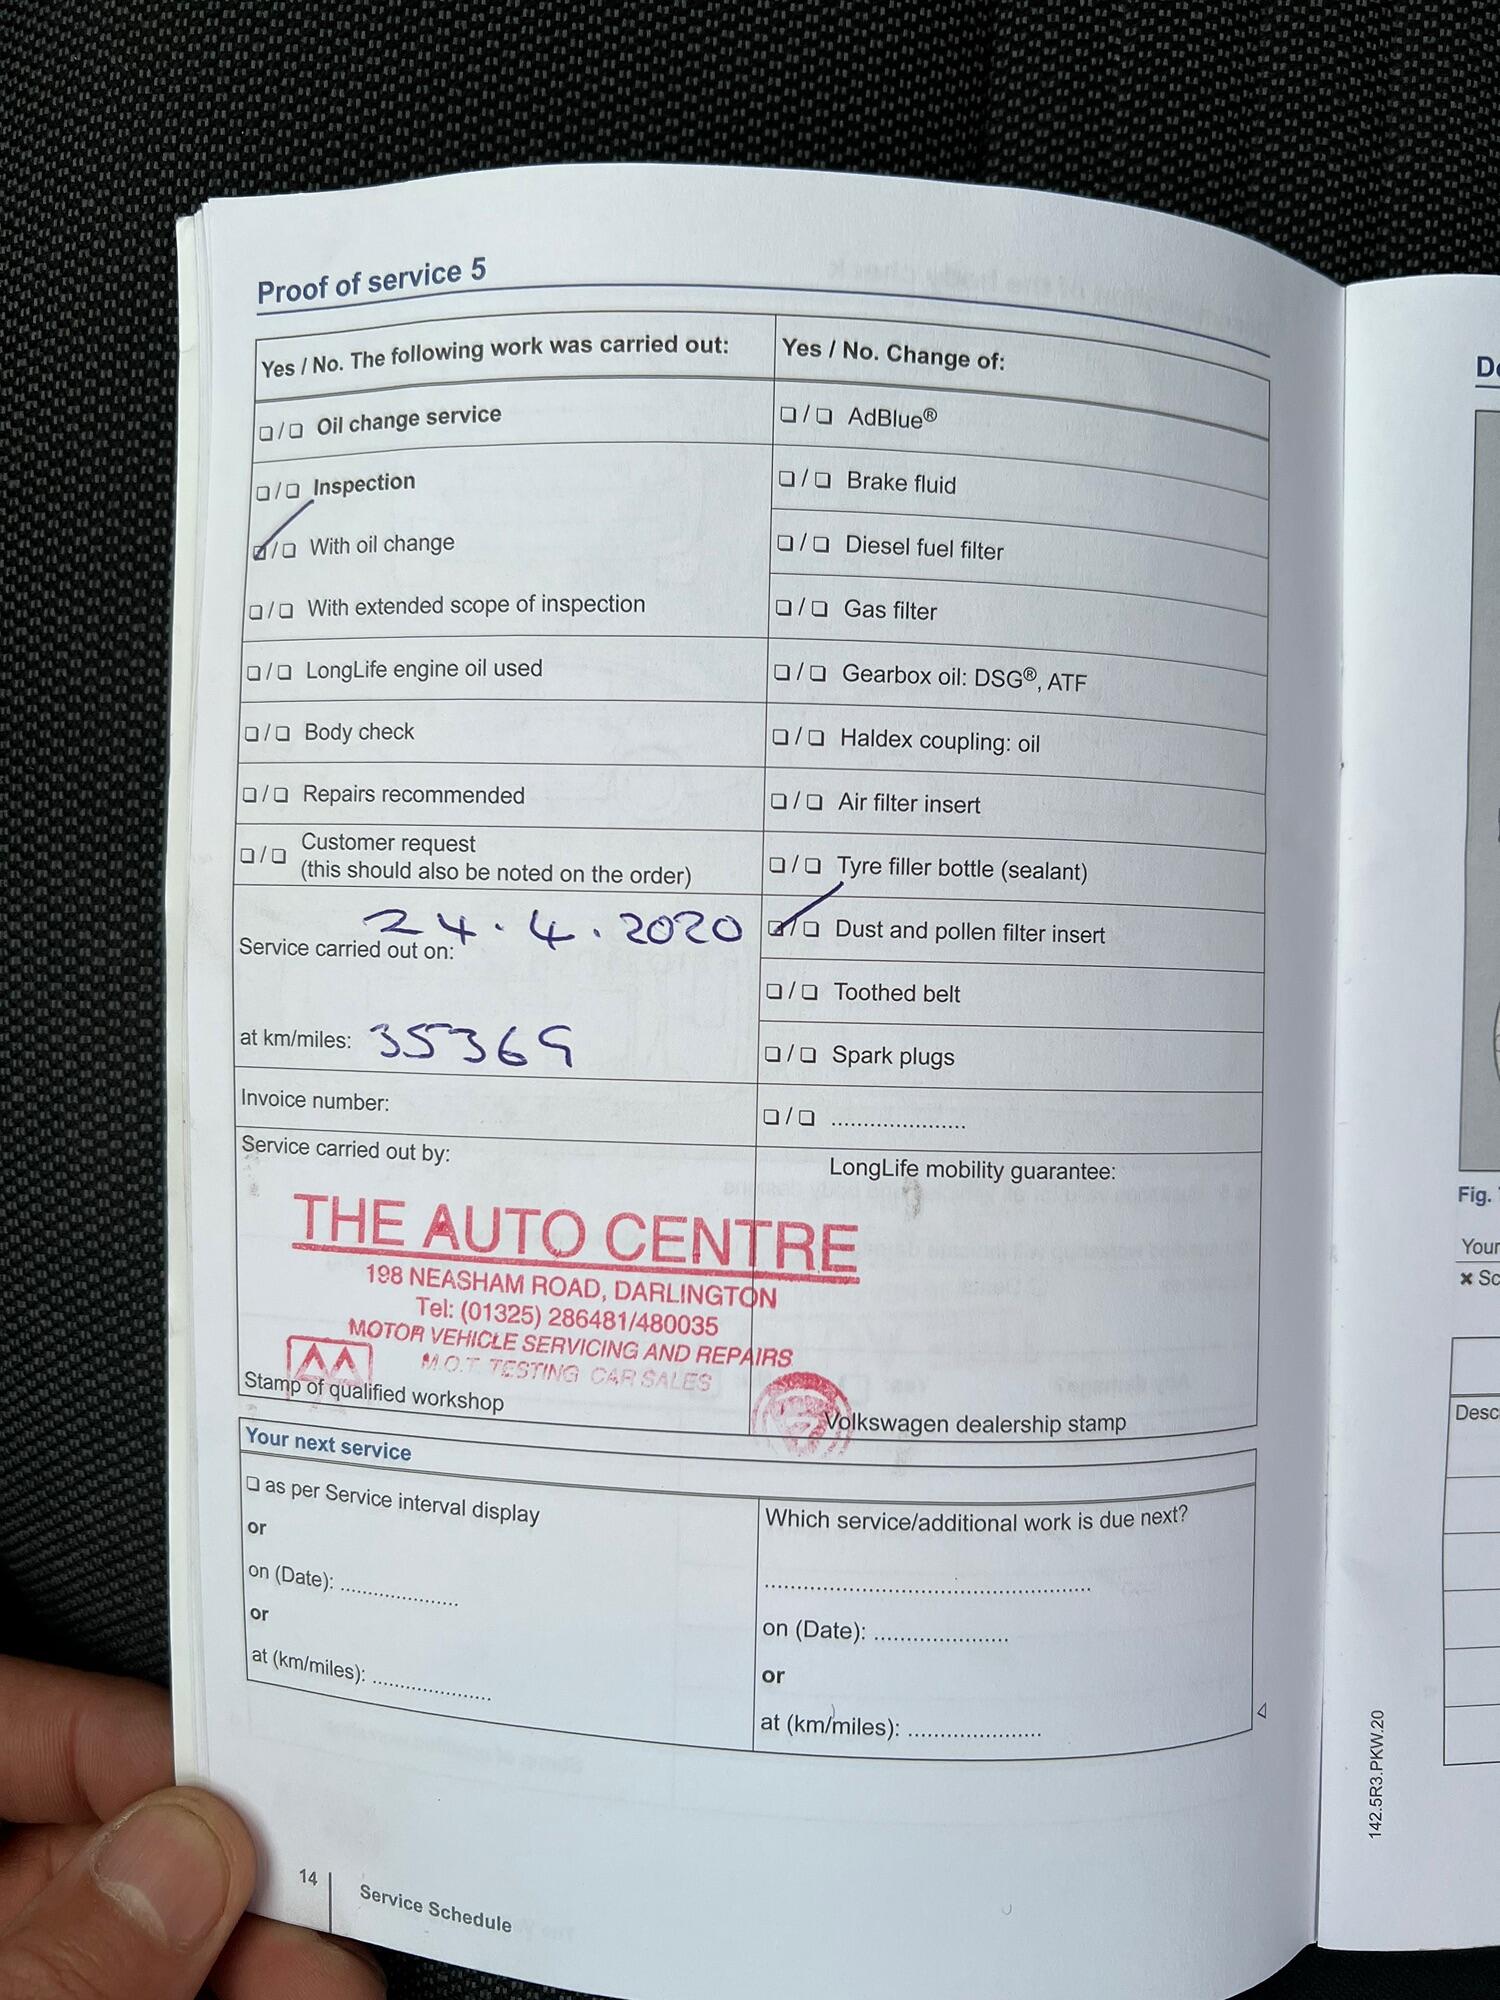 Proof of service 5
Yes / No. The following work was carried out:
❏ / ❏ Oil change service
❏ / ❏ Inspection
☑ / ❏ With oil change
❏ / ❏ With extended scope of inspection
❏ / ❏ LongLife engine oil used
❏ / ❏ Body check
❏ / ❏ Repairs recommended
❏ / ❏ Customer request
(this should also be noted on the order)
24.4.2020
Service carried out on:
at km/miles: 35369
Invoice number:
Service carried out by:
Yes / No. Change of:
❏ / ❏ AdBlue®
❏ / ❏ Brake fluid
❏ / ❏ Diesel fuel filter
❏ / ❏ Gas filter
❏ / ❏ Gearbox oil: DSG®, ATF
❏ / ❏ Haldex coupling: oil
❏ / ❏ Air filter insert
❏ / ❏ Tyre filler bottle (sealant)
☑ / ❏ Dust and pollen filter insert
❏ / ❏ Toothed belt
❏ / ❏ Spark plugs
❏ / ❏ ......................
LongLife mobility guarantee:
THE AUTO CENTRE
198 NEASHAM ROAD, DARLINGTON
Tel: (01325) 286481/480035
MOTOR VEHICLE SERVICING AND REPAIRS
M.O.T. TESTING CAR SALES
Stamp of qualified workshop
Volkswagen dealership stamp
Your next service
❏ as per Service interval display
or
on (Date): ....................
or
at (km/miles): ....................
Which service/additional work is due next?
......................................................
on (Date): ......................
or
at (km/miles): ......................
14
Service Schedule
142.5R3.PKW.20
Fig.
Your